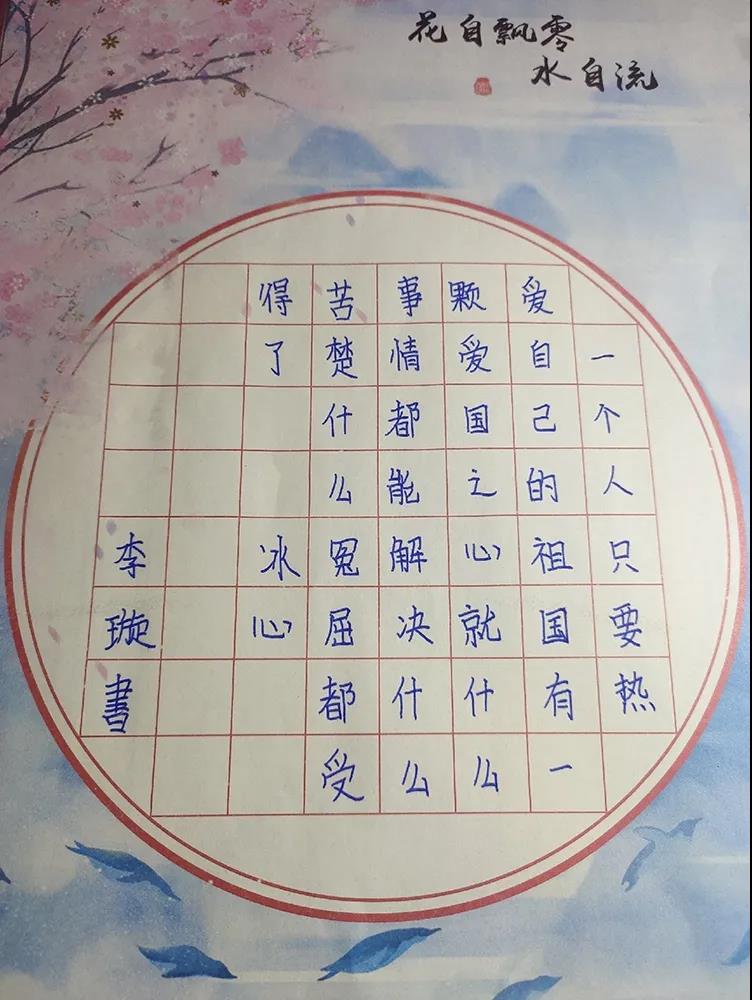 花自飘零
水自流
一个人只要热
爱自己的祖国有一
颗爱国之心就什么
事情都能解决什么
苦楚什么冤屈都受
得了 冰心
李璇書